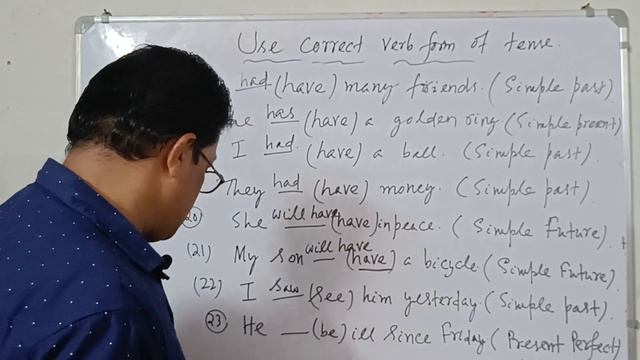 Use correct verb form of tense.
had (have) many friends. (Simple past)
has (have) a golden ring (Simple present)
I had. (have) a ball. (Simple past).
They had (have) money. (Simple past).
(20) She will have (have) in peace. (Simple Future).
(21) My son will have (have) a bicycle (Simple Future).
(22) I saw (see) him yesterday (Simple past).
(23) He __ (be) ill since Friday (Present Perfect)